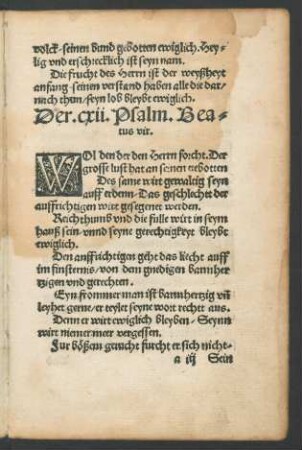 volck·seinen bund gebotten ewiglich. Hey⸗
lig vnd erschrecklich ist seyn nam.
Die frucht des Herrn ist der weyßheyt
anfang·seinen verstand haben alle die dar/
nach thun/seyn lob bleybt ewiglich.
Der. cxii. Psalm. Bea⸗
tus vir.
WOl den der den Herrn forcht. Der
grosse lust hat an seinen gebotten
Des same wirt gewaltig seyn
auff erdenn·Das geschlecht der
auffrichtigen wirt gesegenet werden.
Reichthumb vnd die fulle wirt in seym
hauß sein·vnnd seyne gerechtigkeyt bleybt
ewiglich.
Den auffrichtigen geht das liecht auff
im finsternis/von dem gnedigen barmher
tzigen vnd gerechten.
Eyn frommer man ist barmhertzig vñ
leyhet gerne/er teylet seyne wort recht aus.
Denn er wirt ewiglich bleyben·Seynn
wirt niemer meer vergessen.
Fur bößem gerucht furcht er sich nicht⸗
a iij Sein